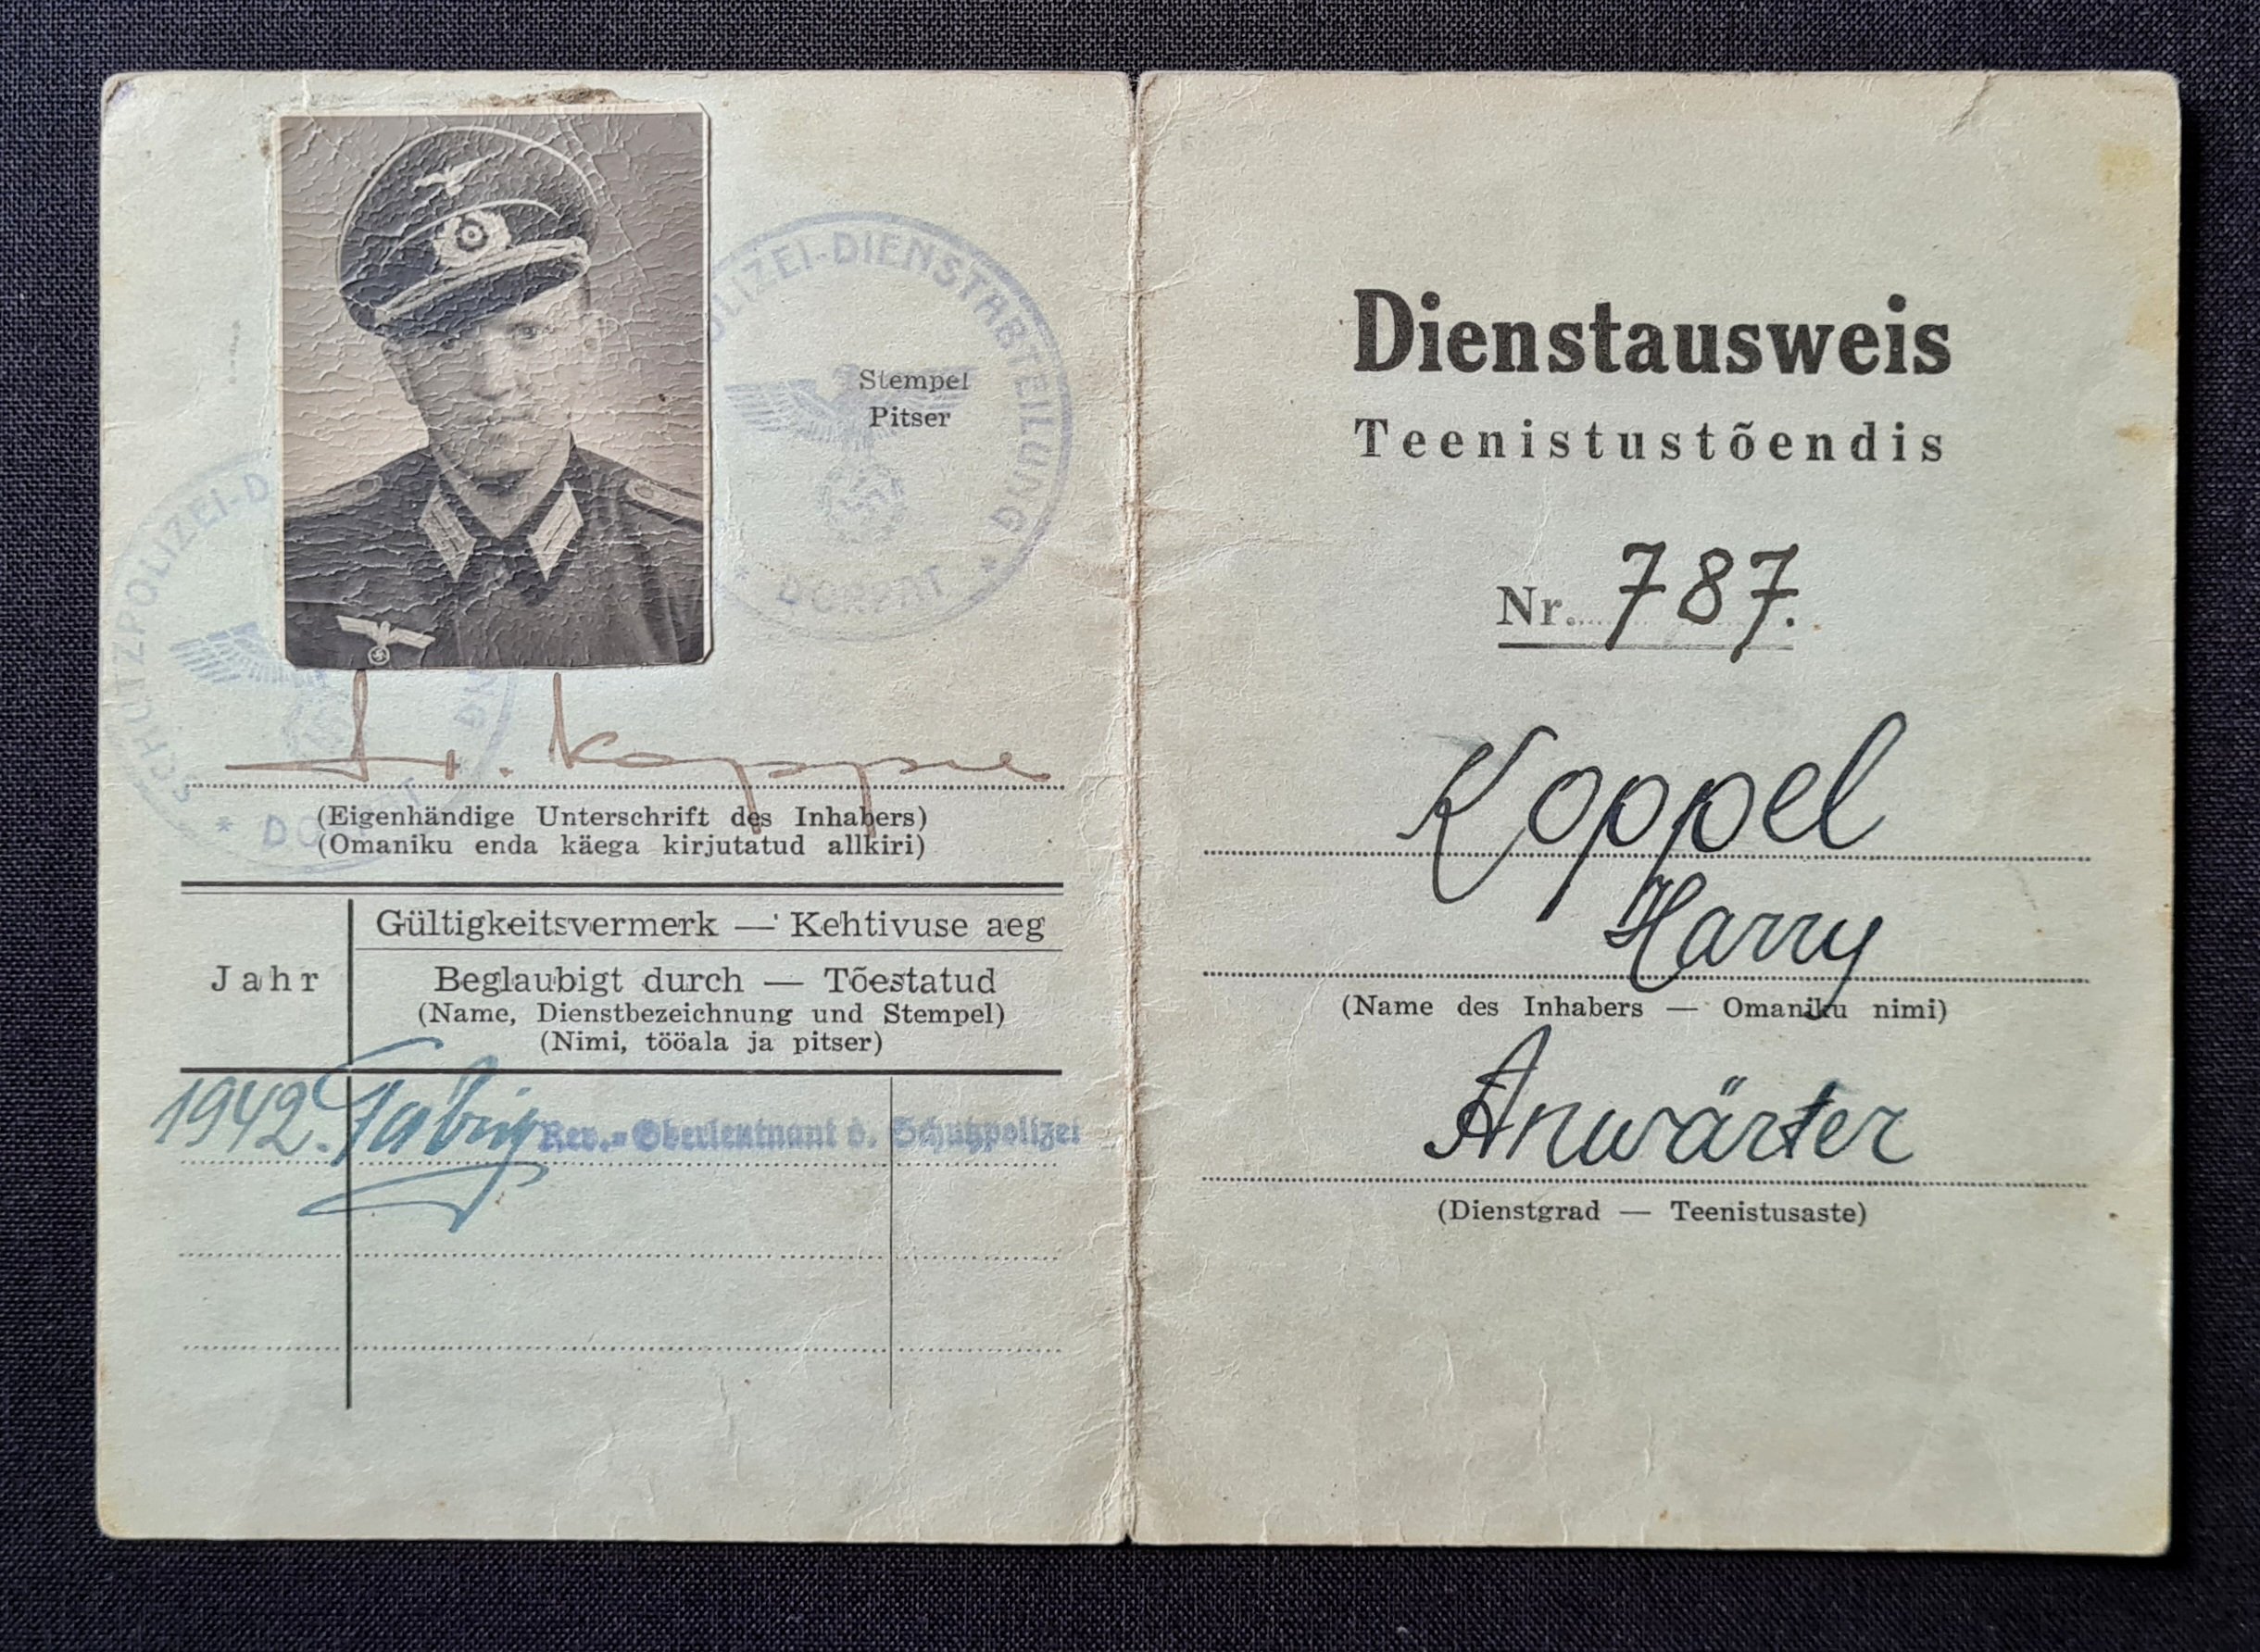 POLIZEI-DIENSTABTEILUNG
* DORPAT *
Stempel
Pitser
SCHUTZPOLIZEI-D
NG
* DO T
H. Koppel
(Eigenhändige Unterschrift des Inhabers)
(Omaniku enda käega kirjutatud allkiri)
Gültigkeitsvermerk — Kehtivuse aeg
Jahr
Beglaubigt durch — Tõestatud
(Name, Dienstbezeichnung und Stempel)
(Nimi, tööala ja pitser)
1942. Rev.=Oberleutnant d. Schutzpolizei
Dienstausweis
Teenistustõendis
Nr. 787.
Koppel
Harry
(Name des Inhabers — Omaniku nimi)
Anwärter
(Dienstgrad — Teenistusaste)